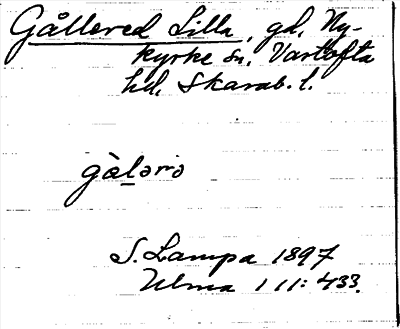 Gållered Lilla, gd, Ny-
kyrke sn, Vartofta
hd, Skarab. l.
gàlərə
S. Lampa 1897
Ulma 111: 433.